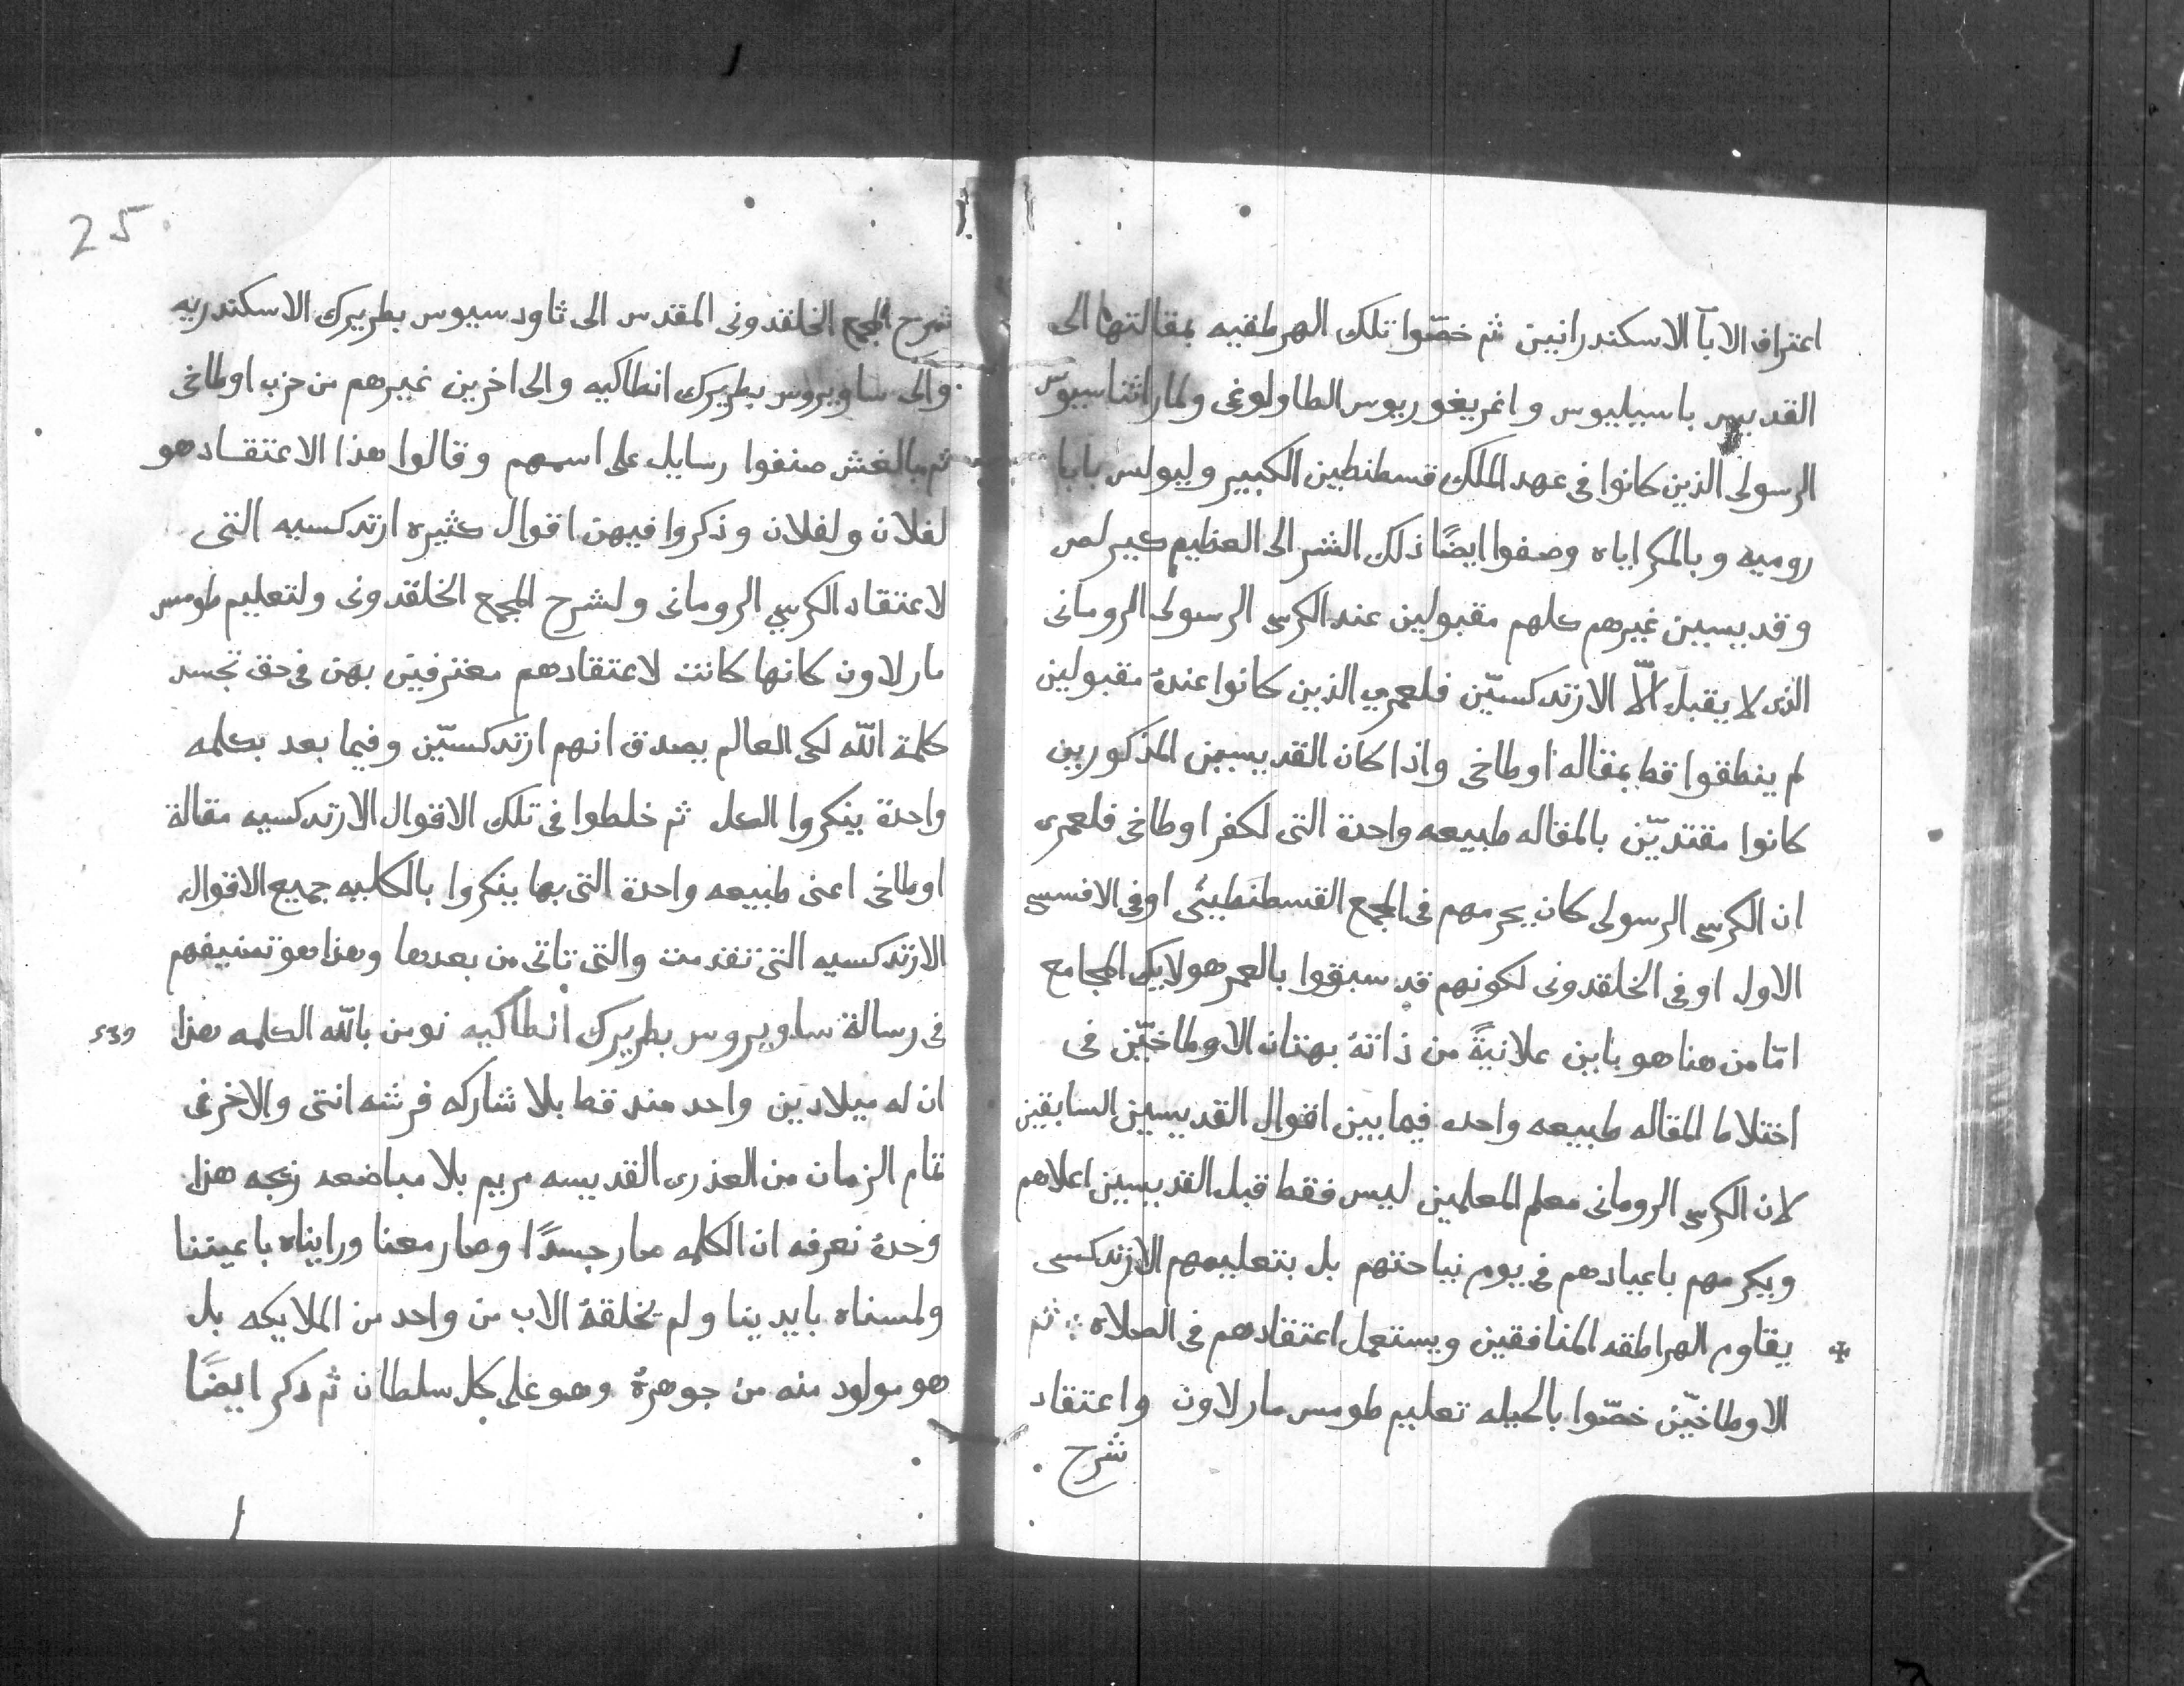 اعتراف الابآ الاسكندرانيين ثم خصّوا تلك الهرطقيه بمقالتها الى
القديس باسيليوس واغريغوريوس الطاولوغى ولماراثناسيوس
الرسولى الذين كانوا فى عهد الملك قسطنطين الكبير وليولس بابا
روميه وبالمكراياه وصفوا ايضًا ذلك الشر الى العظيم كيرلص
وقديسين غيرهم كلهم مقبولين عند الكرسى الرسولى الرومانى
الذى لا يقبل الّا الارتدكسيّن فلعمري الذين كانوا عندهُ مقبولين
لم ينطقوا قط بمقاله اوطاخى واذا كان القديسين المذكورين
كانوا مقتديّن بالمقاله طبيعه واحدة التى لكفر اوطاخى فلعمرى
ان الكرسى الرسولى كان يحرمهم فى المجمع القسطنطينى او فى الافسسى
الاول او فى الخلقدونى لكونهم قد سبقوا بالعمر هولايك المجامع
امّا من هنا هو باين علانيةً من ذاتهُ بهتان الاوطاخيّن فى
اختلاط المقاله طبيعه واحده فيما بين اقوال القديسين السابقين
لان الكرسى الرومانى معلم المعلمين ليس فقط قبل القديسين اعلاهم
ويكرمهم باعيادهم فى يوم نياحتهم بل بتعليمهم الارتدكسى
يقاوم الهراطقه المنافقين ويستعمل اعتقادهم فى الصلاه ؛ ثم
الاوطاخيّن خصّوا بالحيله تعليم طومس مار لاون واعتقاد
شرح
25
شرح المجمع الخلقدونى المقدس الى ثاودسيوس بطريرك الاسكندريه
والى ساويروس بطريرك انطاكيه والى اخرين غيرهم من حزب اوطاخى
ثم بالغش صنفوا رسايل على اسمهم وقالوا هذا الاعتقاد هو
لفلان ولفلان وذكروا فيهن اقوال كثيره ارتدكسيه التى
لاعتقاد الكرسي الرومانى ولشرح المجمع الخلقدونى ولتعليم طومس
مار لاون كانها كانت لاعتقادهم معترفين بهن فى حق تجسد
كلمة الله لكى العالم يصدق انهم ارتدكسيّن وفيما بعد بكلمه
واحدة ينكروا الكل ثم خلطوا فى تلك الاقوال الارتدكسيه مقالة
اوطاخى اعنى طبيعه واحدة التى بها ينكروا بالكليه جميع الاقوال
الارتدكسيه التى تقدمت والتى تاتى من بعدها وهذا هو تصنيفهم
فى رسالة ساويروس بطريرك انطاكيه نومن بالله الكلمه هذا
539
ان له ميلادين واحد منذ قط بلا شاركه فرشه انتى والاخر فى
تمام الزمان من العذرى القديسه مريم بلا مباضعه زيجه هذا
وحدهُ نعرفه ان الكلمه صار جسدًا وصار معنا ورايناه باعيننا
ولمسناه بايدينا ولم يخلقهُ الاب من واحد من الملايكه بل
هو مولود منه من جوهرهُ وهو على كل سلطان ثم ذكر ايضًا